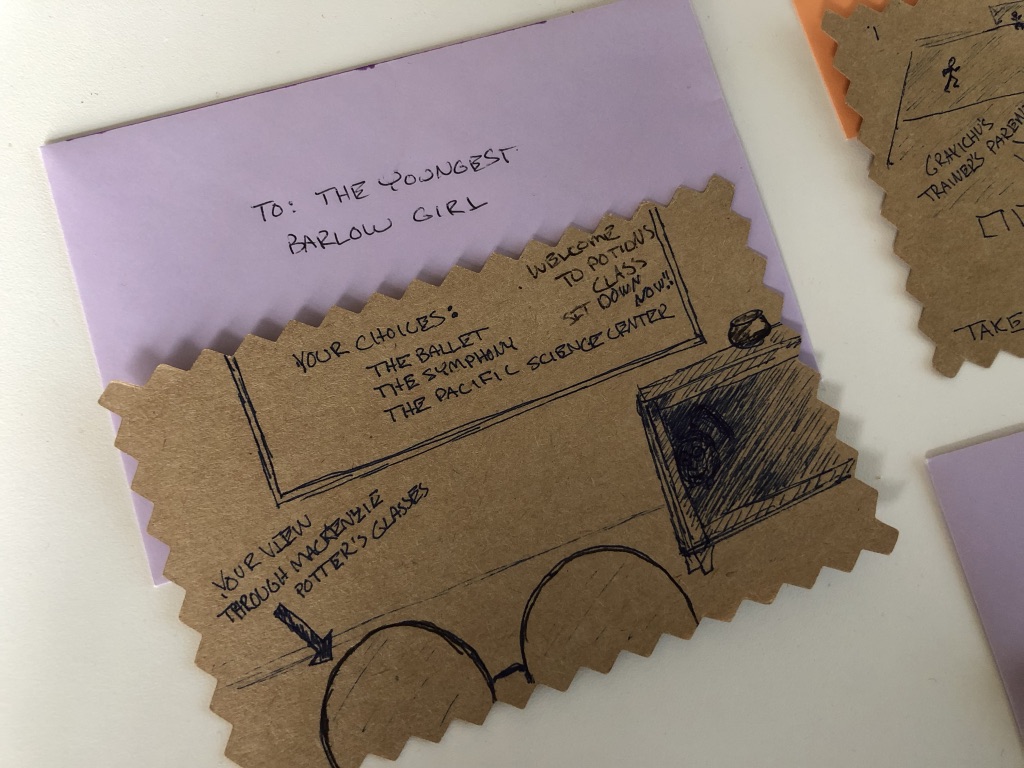 TO: THE YOUNGEST
BARLOW GIRL
YOUR CHOICES:
THE BALLET
THE SYMPHONY
THE PACIFIC SCIENCE CENTER
WELCOME
TO POTIONS
CLASS
SIT DOWN
NOW!!
YOUR VIEW
THROUGH MACKENZIE
POTTER'S GLASSES
TRAINER'S
TAKE